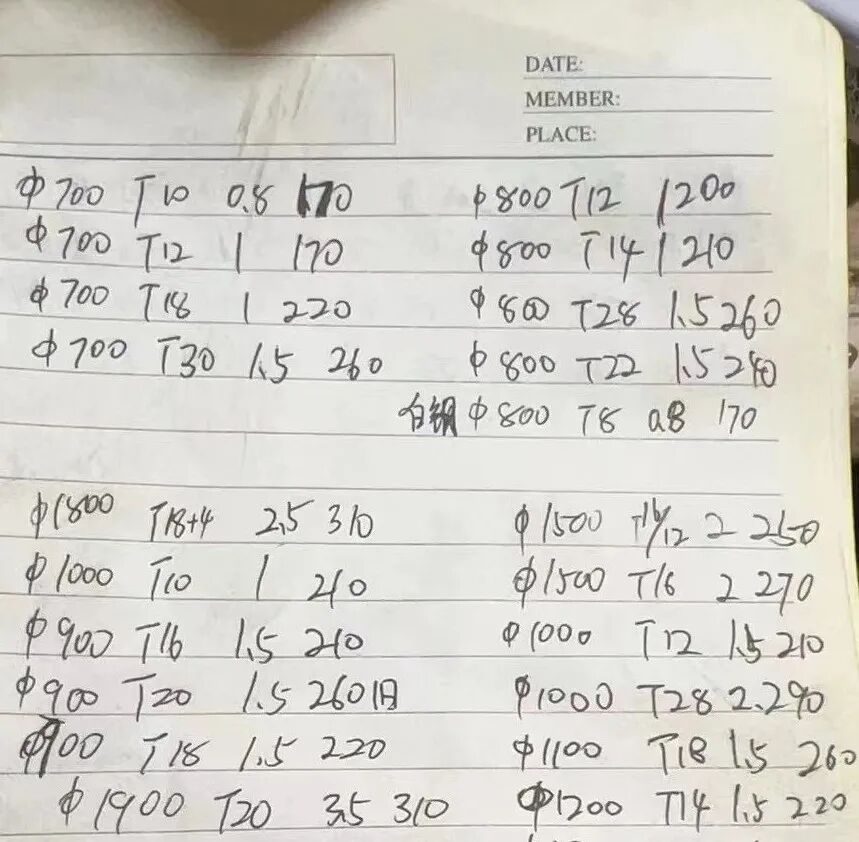 DATE:
MEMBER:
PLACE:
φ700 T10 0.8 170
φ700 T12 1 170
φ700 T18 1 220
φ700 T30 1.5 260
φ800 T12 1 200
φ800 T14 1 210
φ800 T28 1.5 260
φ800 T22 1.5 240
白钢 φ800 T8 0.8 170
φ1800 T18+4 2.5 310
φ1000 T10 1 210
φ900 T16 1.5 210
φ900 T20 1.5 260旧
φ900 T18 1.5 220
φ1900 T20 3.5 310
φ1500 T16/12 2 250
φ1500 T16 2 270
φ1000 T12 1.5 210
φ1000 T28 2. 290
φ1100 T18 1.5 260
φ1200 T14 1.5 220